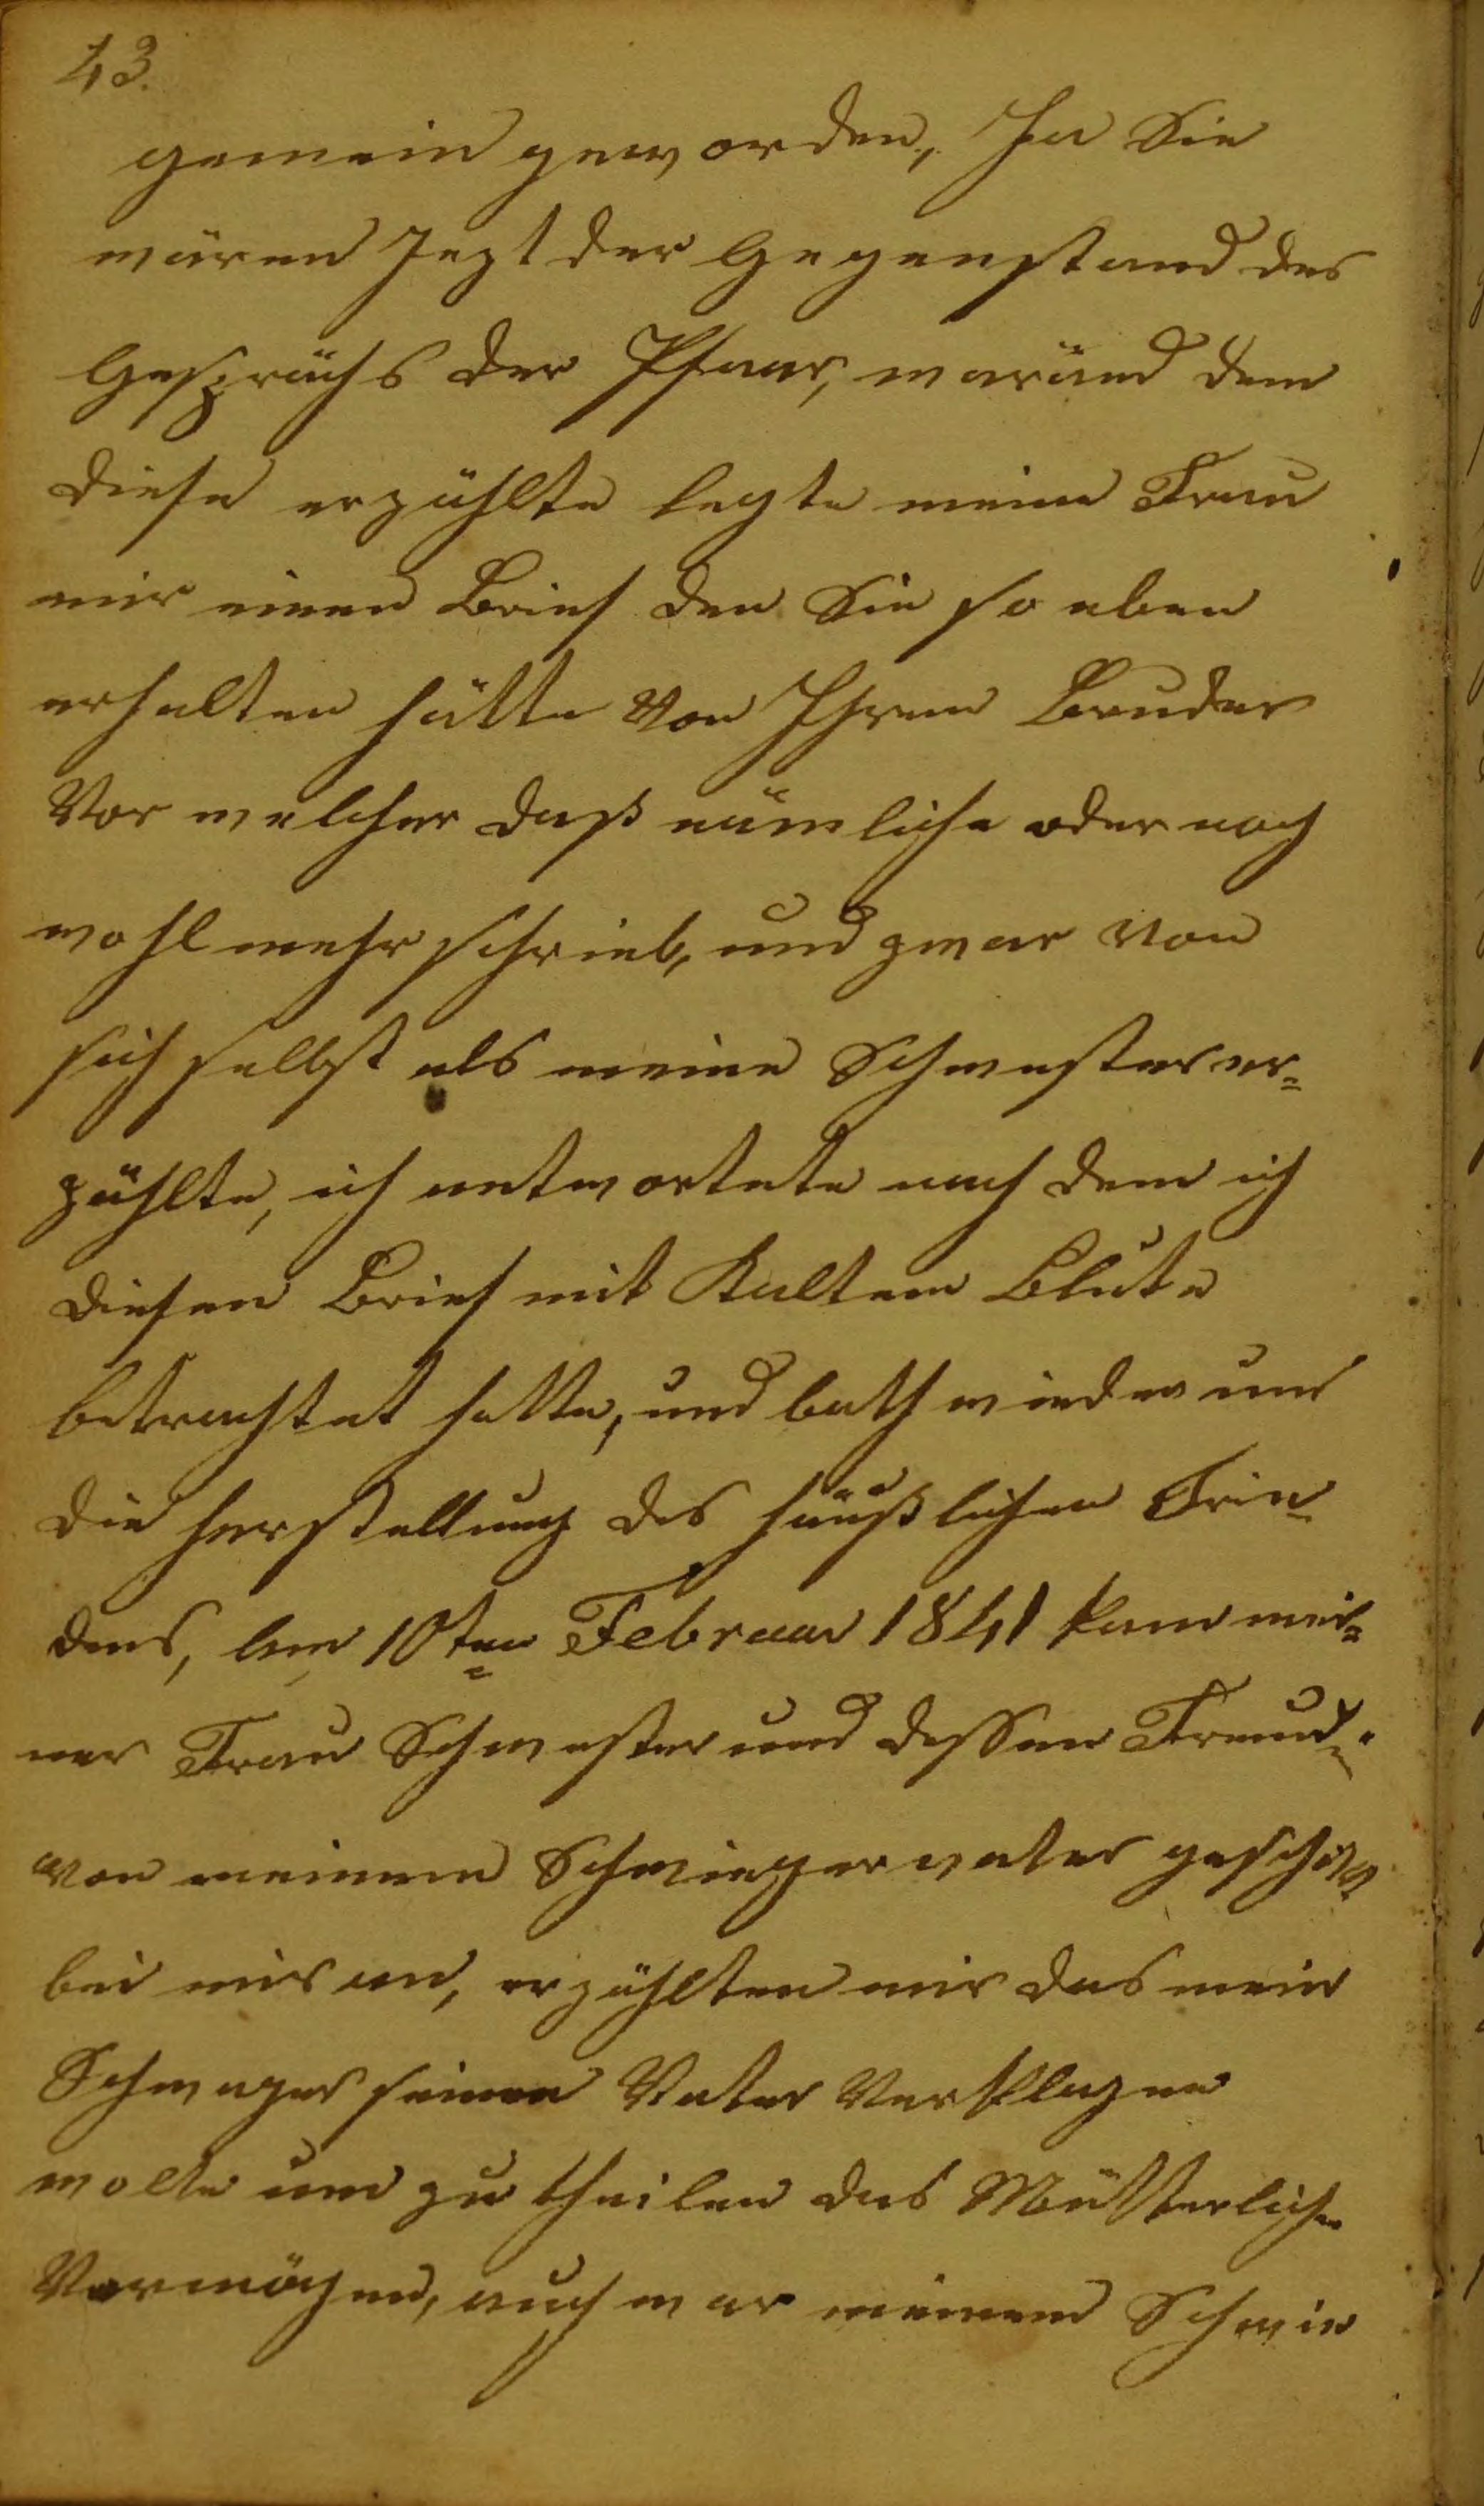 43.
gemein geworden, Ja Sie
wären Jezt der Gegenstand des
Gesprächs der Pfaar, wäränd dem
diese erzählte legte meine Frau
mir einen Brief den Sie so eben
erhalten hätte von Ihrem Bruder
Vor welcher daß nämliche oder noch
wohl mehr schrieb, und zwar von
sich selbst als meine Schwester er=
zählte, ich antwortete nach dem ich
diesen Brief mit Kaltem Blute
betrachtet hatte, und bath wieder um
die herstellung des häußlichen Frie=
dens, am 10ten Februar 1841 kam mei=
ner Frau Schwester und dessen Freund
von meinem Schwiegervater geschikt
bei mir an, erzählten mir das mein
Schwager seinen Vater Verklagen
wolte um zu theilen das Mütterliche
Vermögen, auch war meinem Schwie